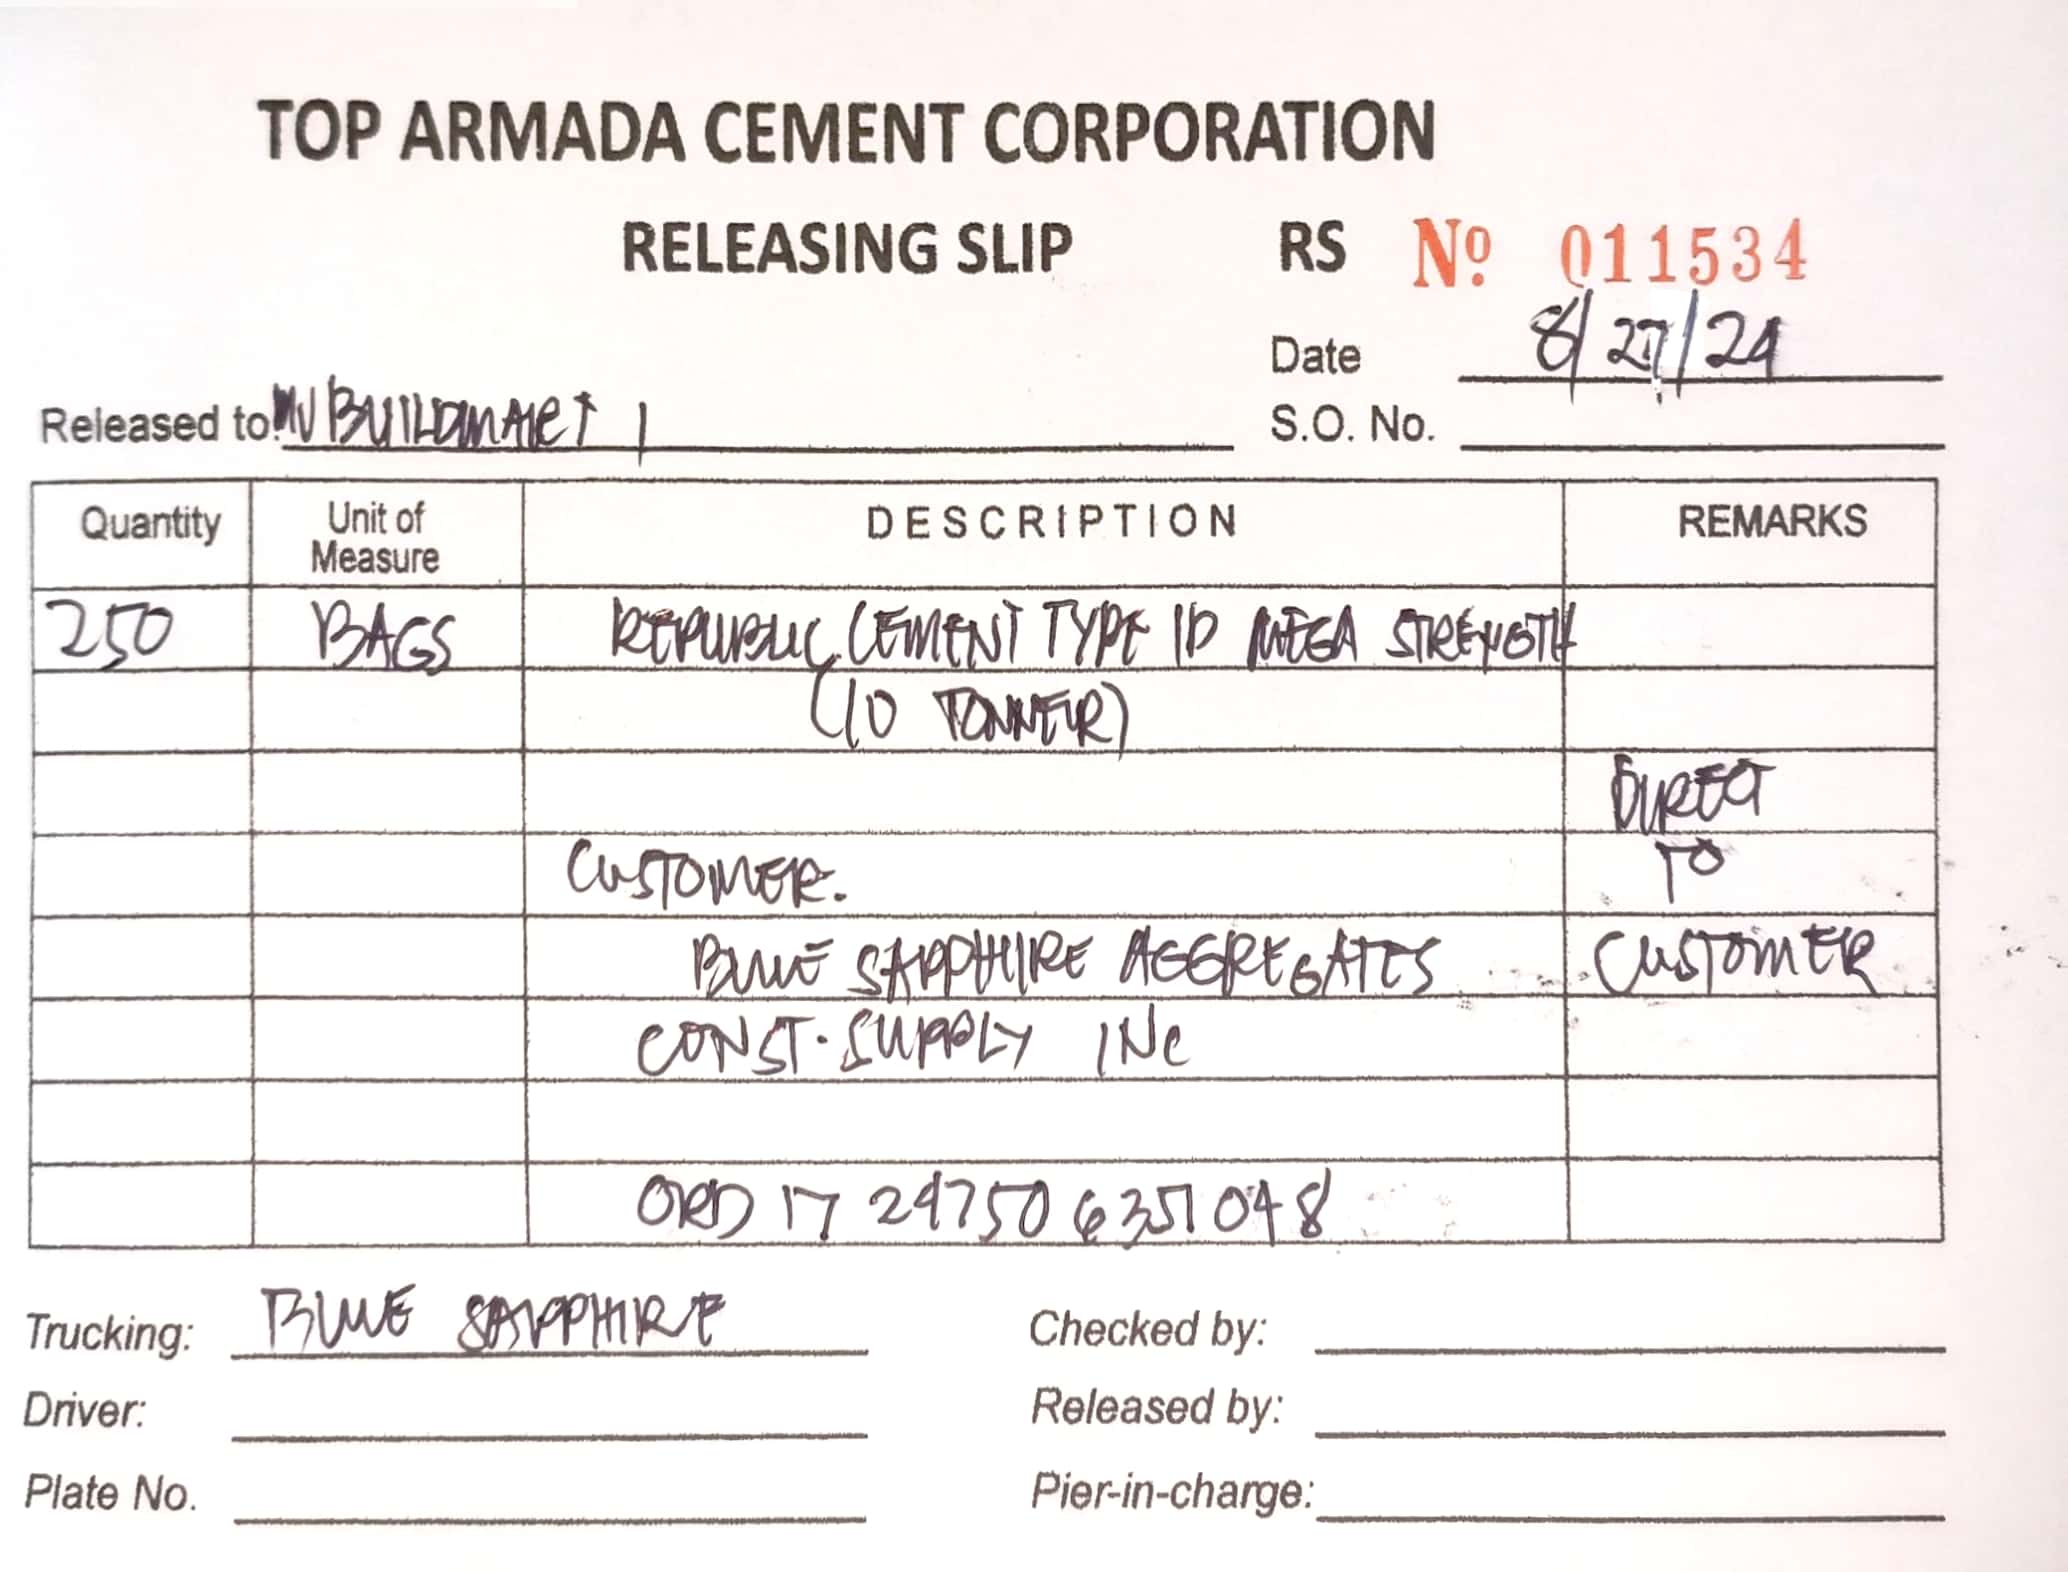 TOP ARMADA CEMENT CORPORATION
RELEASING SLIP RS Nº 011534
Date 8/27/24
Released to: MV BUILDMART 1
S.O. No.
Quantity Unit of Measure DESCRIPTION REMARKS
250 BAGS REPUBLIC CEMENT TYPE 1D MEGA STRENGTH
(10 TONNER)
DIRECT
CUSTOMER. TO
BLUE SAPPHIRE AGGREGATES CUSTOMER
CONST. SUPPLY INC
ORD 17 24750 6357 048
Trucking: BLUE SAPPHIRE Checked by:
Driver: Released by:
Plate No. Pier-in-charge: